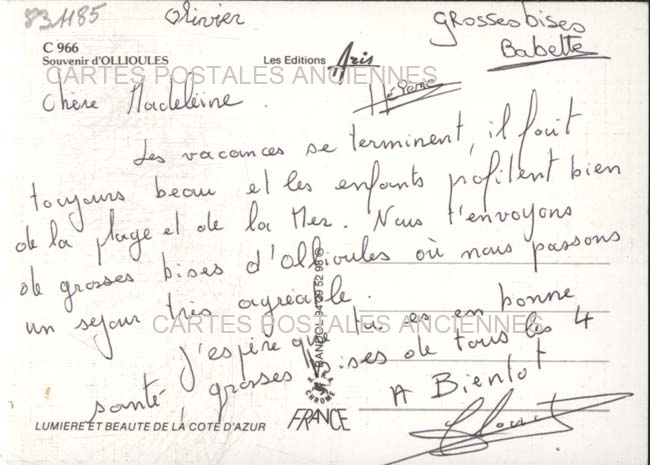 83 1185
Olivier
grosses bises
Babette
C 966
Souvenir d'OLLIOULES
Les Editions Aris
CARTES POSTALES ANCIENNES
Chère Madeleine.
Les vacances se terminent, il fait
toujours beau et les enfants profitent bien
de la plage et de la Mer. Nous t'envoyons
de grosses bises d'Ollioules où nous passons
un sejour très agréable.
J'espère que tu es en bonne
santé, grosses bises de tous les 4
A Bientot
CARTES POSTALES ANCIENNES
BANDOL 94 29 52 98 ©
CHROME
FRANCE
LUMIERE ET BEAUTE DE LA COTE D'AZUR